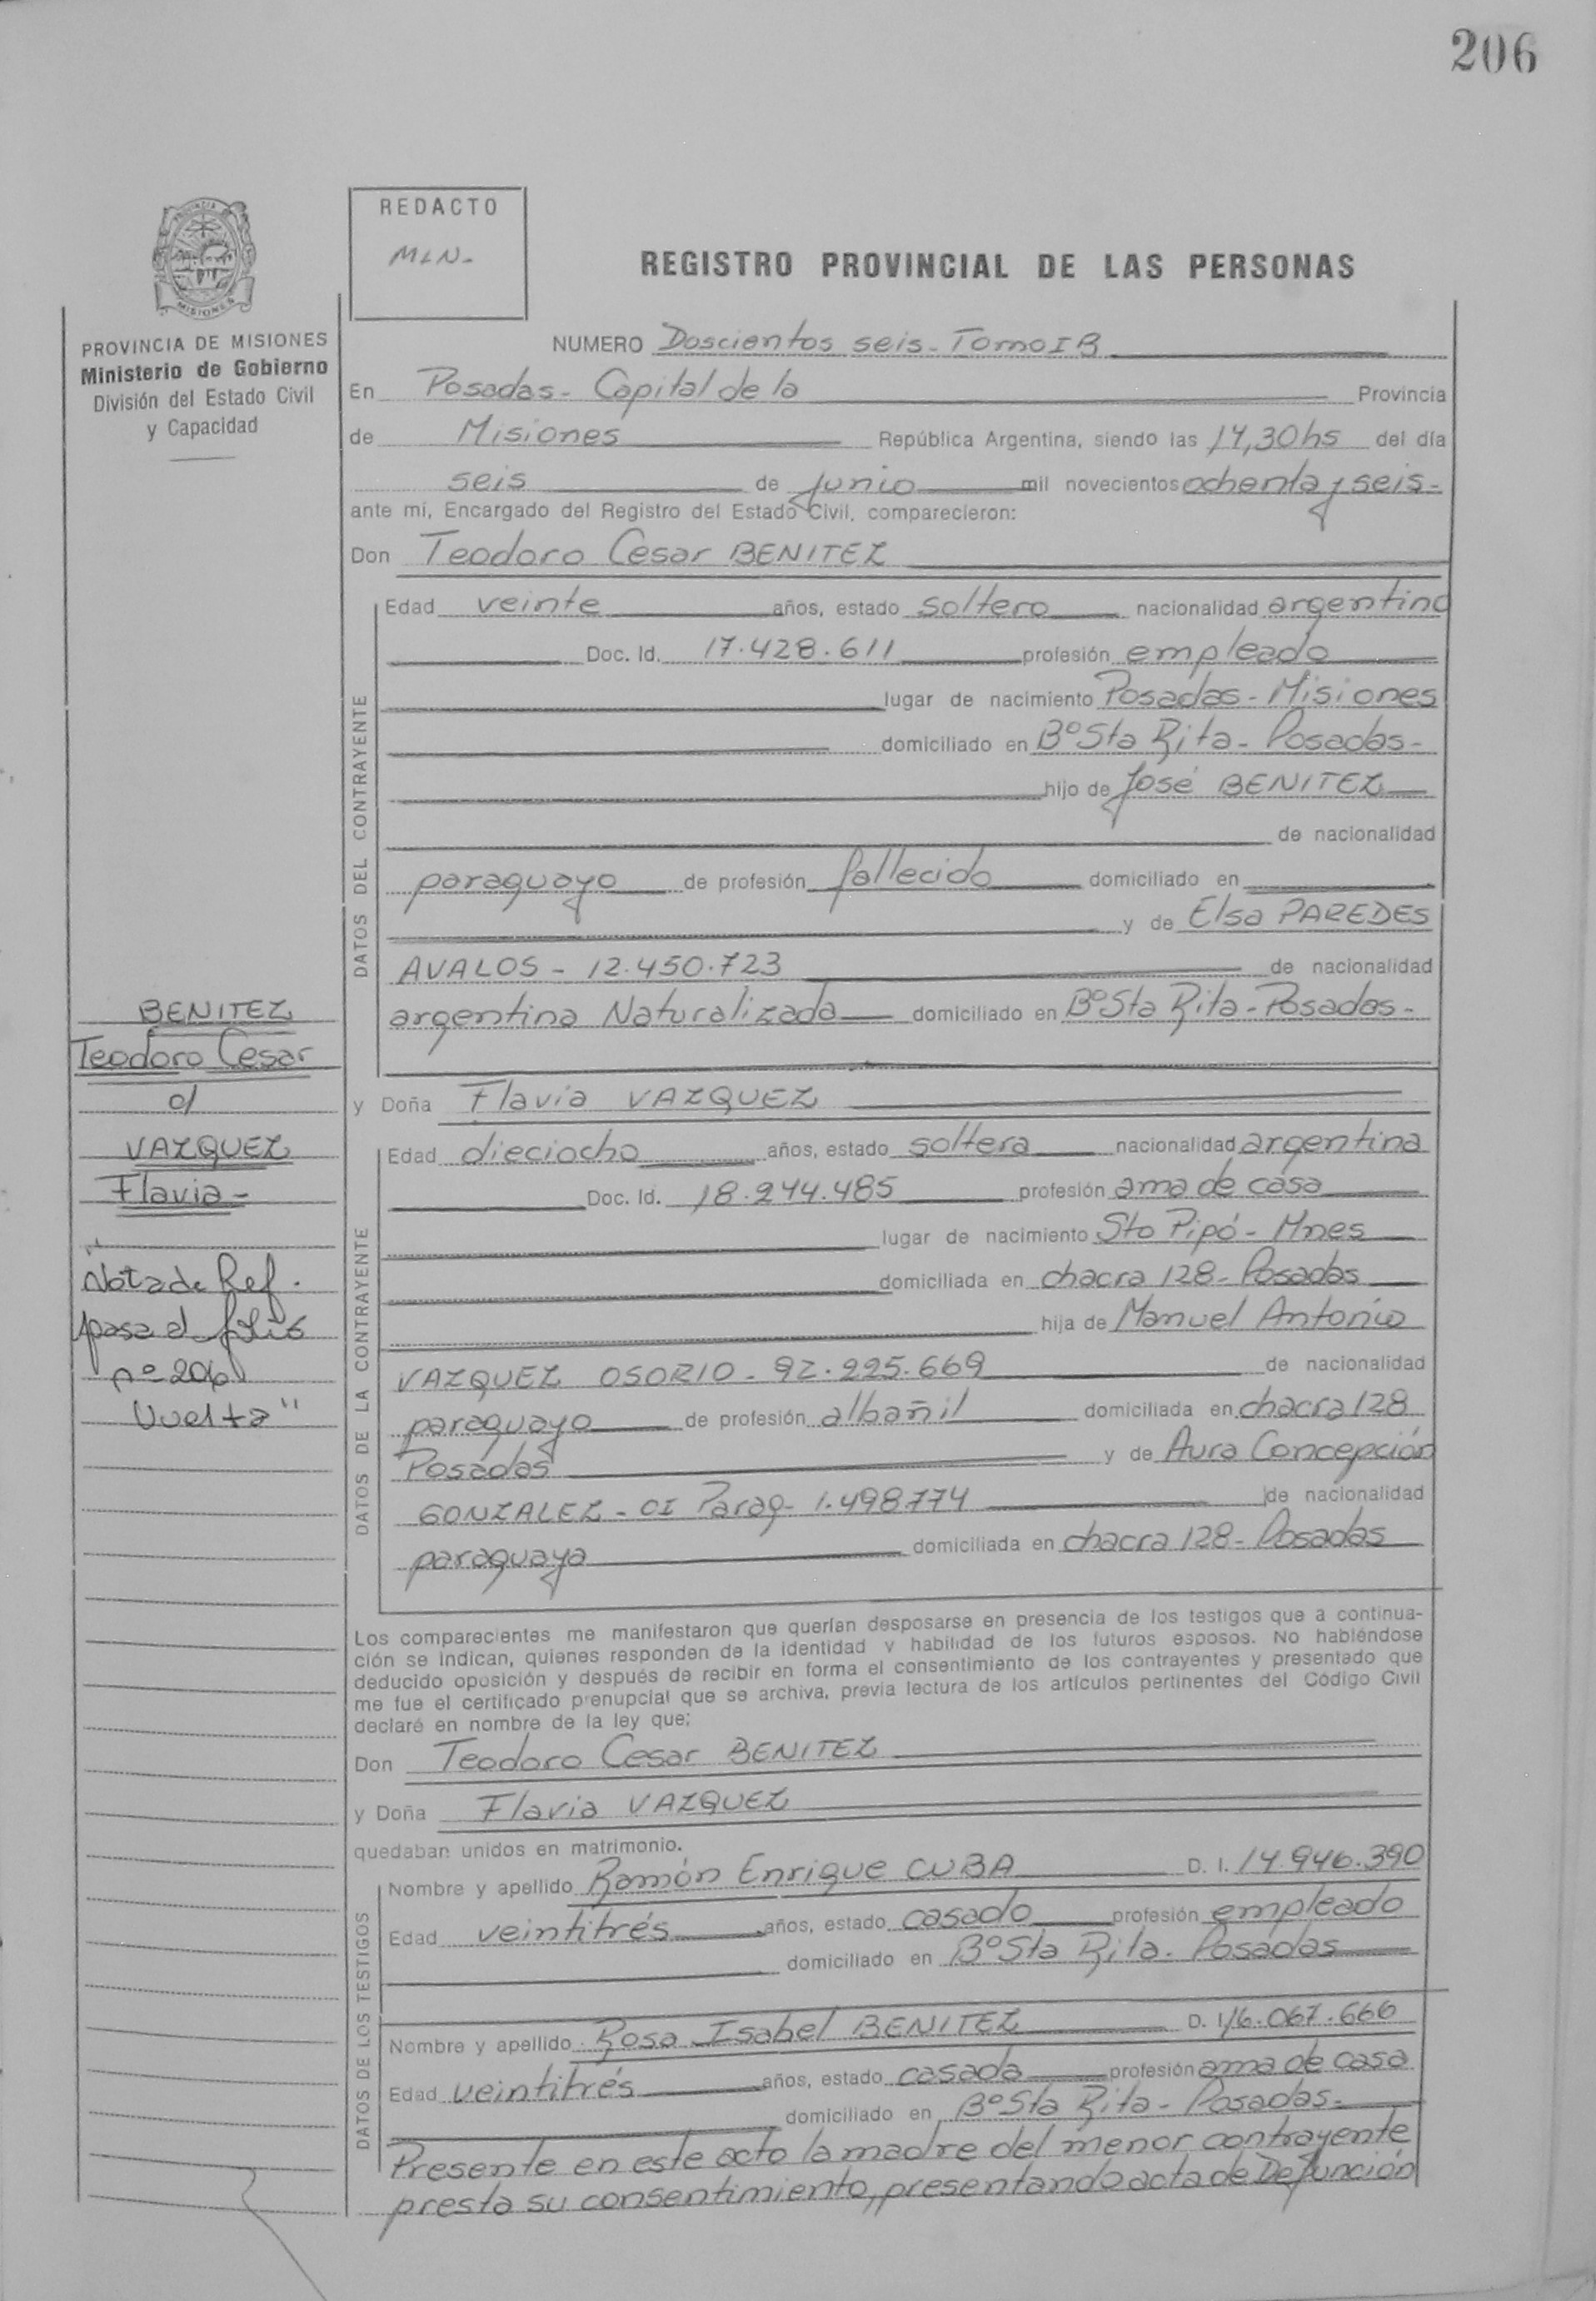 206
REDACTO
MLN-
REGISTRO PROVINCIAL DE LAS PERSONAS
MISIONES
PROVINCIA DE MISIONES
Ministerio de Gobierno
División del Estado Civil
y Capacidad
NUMERO Doscientos seis - Tomo I B
En Posadas - Capital de la Provincia
de Misiones República Argentina, siendo las 14,30 hs del día
seis de junio mil novecientos ochenta y seis -
ante mi, Encargado del Registro del Estado Civil, comparecieron:
Don Teodoro Cesar BENITEZ
DATOS DEL CONTRAYENTE
Edad veinte años, estado soltero nacionalidad argentino
Doc. Id. 17.428.611 profesión empleado
lugar de nacimiento Posadas - Misiones
domiciliado en Bº Sta Rita - Posadas -
hijo de José BENITEZ
de nacionalidad
paraguayo de profesión fallecido domiciliado en
y de Elsa PAREDES
AVALOS - 12.450.723 de nacionalidad
argentina Naturalizada domiciliado en Bº Sta Rita - Posadas -
BENITEZ
Teodoro Cesar
c/
VAZQUEZ
Flavia -
"
Nota de Ref.
pasa al folio
nº 206
Vuelta"
y Doña Flavia VAZQUEZ
DATOS DE LA CONTRAYENTE
Edad dieciocho años, estado soltera nacionalidad argentina
Doc. Id. 18.244.485 profesión ama de casa
lugar de nacimiento Sto Pipó - Mnes
domiciliada en chacra 128 - Posadas
hija de Manuel Antonio
VAZQUEZ OSORIO - 92.225.669 de nacionalidad
paraguayo de profesión albañil domiciliada en chacra 128
Posadas y de Aura Concepción
GONZALEZ - CI Parag - 1.498.774 de nacionalidad
paraguaya domiciliada en chacra 128 - Posadas
Los comparecientes me manifestaron que querían desposarse en presencia de los testigos que a continua-
ción se indican, quienes responden de la identidad y habilidad de los futuros esposos. No habiéndose
deducido oposición y después de recibir en forma el consentimiento de los contrayentes y presentado que
me fue el certificado prenupcial que se archiva, previa lectura de los artículos pertinentes del Código Civil
declaré en nombre de la ley que:
Don Teodoro Cesar BENITEZ
y Doña Flavia VAZQUEZ
quedaban unidos en matrimonio.
DATOS DE LOS TESTIGOS
Nombre y apellido Ramón Enrique CUBA D. I. 14.946.390
Edad veintitrés años, estado casado profesión empleado
domiciliado en Bº Sta Rita - Posadas
Nombre y apellido Rosa Isabel BENITEZ D. I. 16.067.666
Edad veintitrés años, estado casada profesión ama de casa
domiciliado en Bº Sta Rita - Posadas -
Presente en este acto la madre del menor contrayente
presta su consentimiento, presentando acta de Defunción